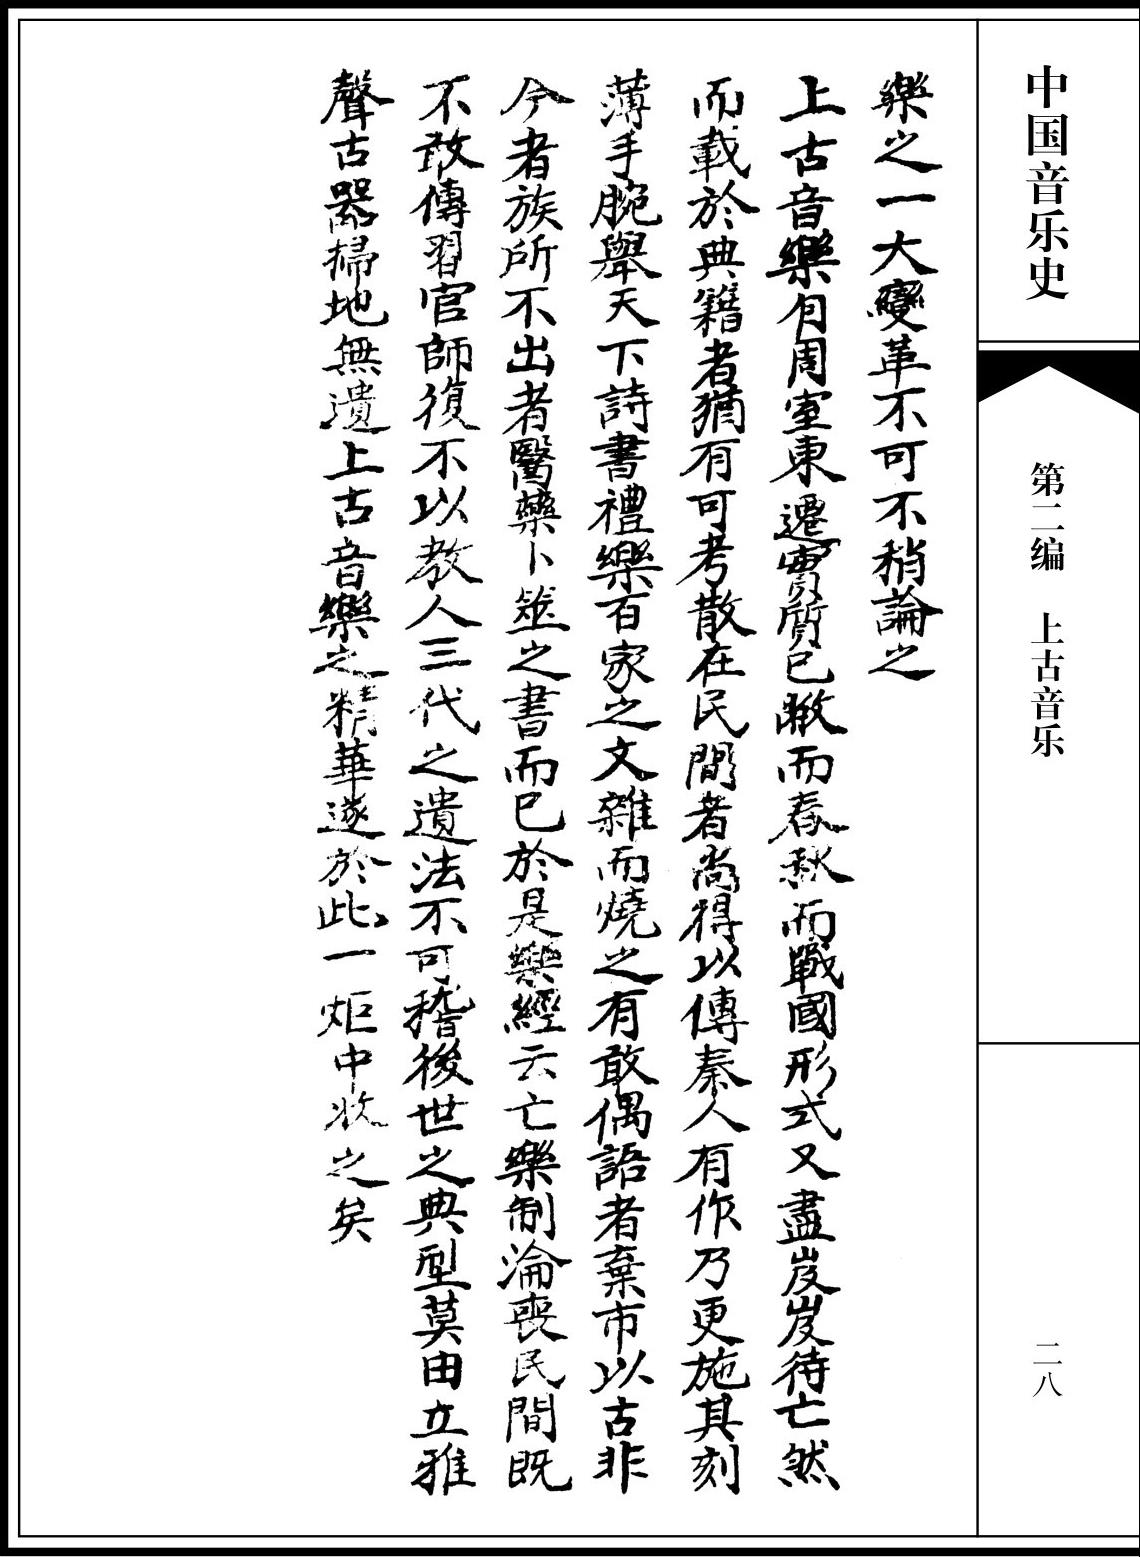 中国音乐史
第二编 上古音乐
二八
樂之一大變革不可不稍論之
上古音樂自周室東遷實質已敝而春秋而戰國形式又盡岌岌待亡然
而載於典籍者猶有可考散在民間者尚得以傳秦人有作乃更施其刻
薄手腕舉天下詩書禮樂百家之文雜而燒之有敢偶語者棄市以古非
今者族所不出者醫藥卜筮之書而已於是樂經云亡樂制淪喪民間既
不敢傳習官師復不以教人三代之遺法不可稽後世之典型莫由立雅
聲古器掃地無遺上古音樂之精華遂於此一炬中收之矣